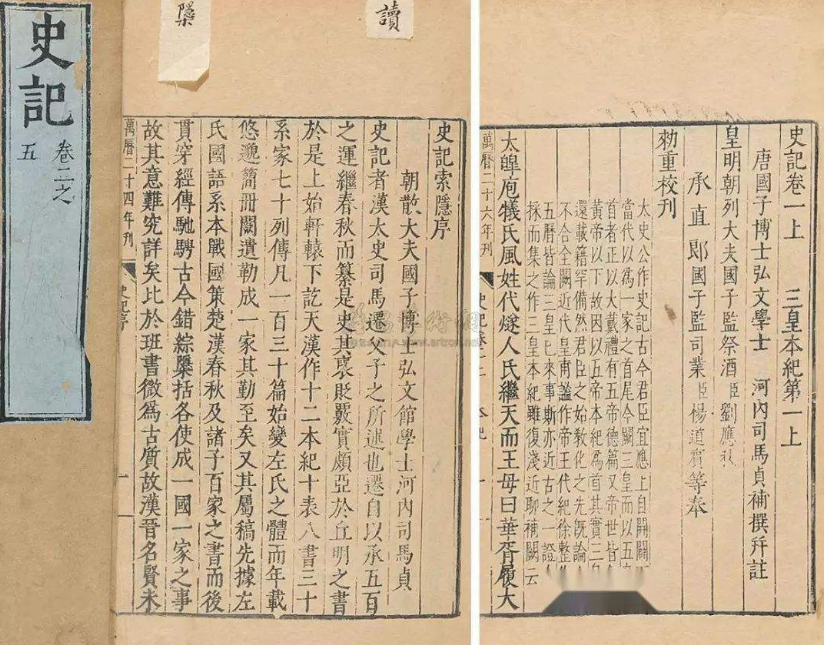 史記
卷二之
五
讀
檃
史記索隱序
朝散大夫國子博士弘文館學士河内司馬貞
史記者漢太史司馬遷父子之所述也遷自以承五百
之運繼春秋而纂是史其裒貶覈實頗亞於丘明之書
於是上始軒轅下訖天漢作十二本紀十表八書三十
系家七十列傳凡一百三十篇始變左氏之體而年載
悠邈簡冊闕遺勒成一家其勤至矣又其屬稿先據左
氏國語系本戰國策楚漢春秋及諸子百家之書而後
貫穿經傳馳騁古今錯綜檃括各使成一國一家之事
故其意難究詳矣比於班書微爲古質故漢晉名賢未
萬曆二十四年刊
史記序
一
史記卷一上 三皇本紀第一上
唐國子博士弘文學士 河内司馬貞補撰幷註
皇明朝列大夫國子監祭酒臣劉應秋
承直郎國子監司業臣楊道賓等奉
勑重校刊
太史公作史記古今君臣宜應上自開闢
當代以爲一家之首尾今闕三皇而以五
首者正以大戴禮有五帝德篇又帝世皆
黃帝以下故因以五帝本紀爲首其實三
還載籍罕備然君臣之始敎化之先既論
不合全闕近代皇甫謐作帝王代紀徐整
五曆皆論三皇已來事斯亦近古之一證
採而集之作三皇本紀雖復淺近聊補闕云
太皥庖犧氏風姓代燧人氏繼天而王母曰華胥履大
萬曆二十六年刊